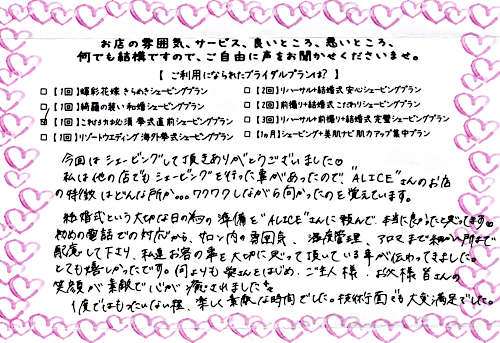 お店の雰囲気、サービス、良いところ、悪いところ、
何でも結構ですので、ご自由に声をお聞かせくださいませ。
【 ご利用になられたブライダルプランは? 】
□【1回】輝彩花嫁 きらめきシェービングプラン
□【2回】リハーサル+結婚式安心シェービングプラン
□【1回】綺羅の装い 和婚シェービングプラン
□【2回】前撮り+結婚式こだわりシェービングプラン
【1回】これさえあれば 挙式直前シェービングプラン
□【3回】リハーサル+前撮り+結婚式完璧シェービングプラン
□【1回】リゾートウエディング 海外挙式シェービングプラン
□【1ヵ月】シェービング+美肌ナビ 肌力アップ集中プラン
今回はシェービングして頂きありがとうございました♡
私は他の店でもシェービングを行った事があったので、"ALICE"さんのお店
の特徴はどんな所か…ワクワクしながら向かったのを覚えています。
結婚式という大切な日の為の準備を"ALICE"さんに頼んで、本当に良かったと思ってます
初めの電話での対応から、サロン内の雰囲気、温度管理、アロマまで細かい所まで
配慮して下さり、私達お客の事を大切に思って頂いている事が伝わってきました。
とても嬉しかったです。何よりも奥さんをはじめ、ご主人様、お父様皆さんの
笑顔が素敵で心が癒されました
1度ではもったいない程、楽しく素敵な時間でした。技術面でも大変満足でした。